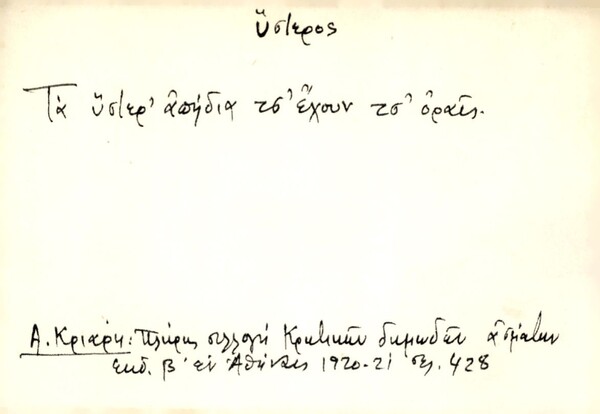 ὕστερος
Τὰ ὕστερ' ἀπήδια τσ' ἔχουν τσ' ὀραῖς.
Α. Κριάρη: Πλήρης συλλογή Κρητικῶν δημωδῶν ἀσμάτων
ἐκδ. β' ἐν Ἀθήναις 1920-21 σελ. 428